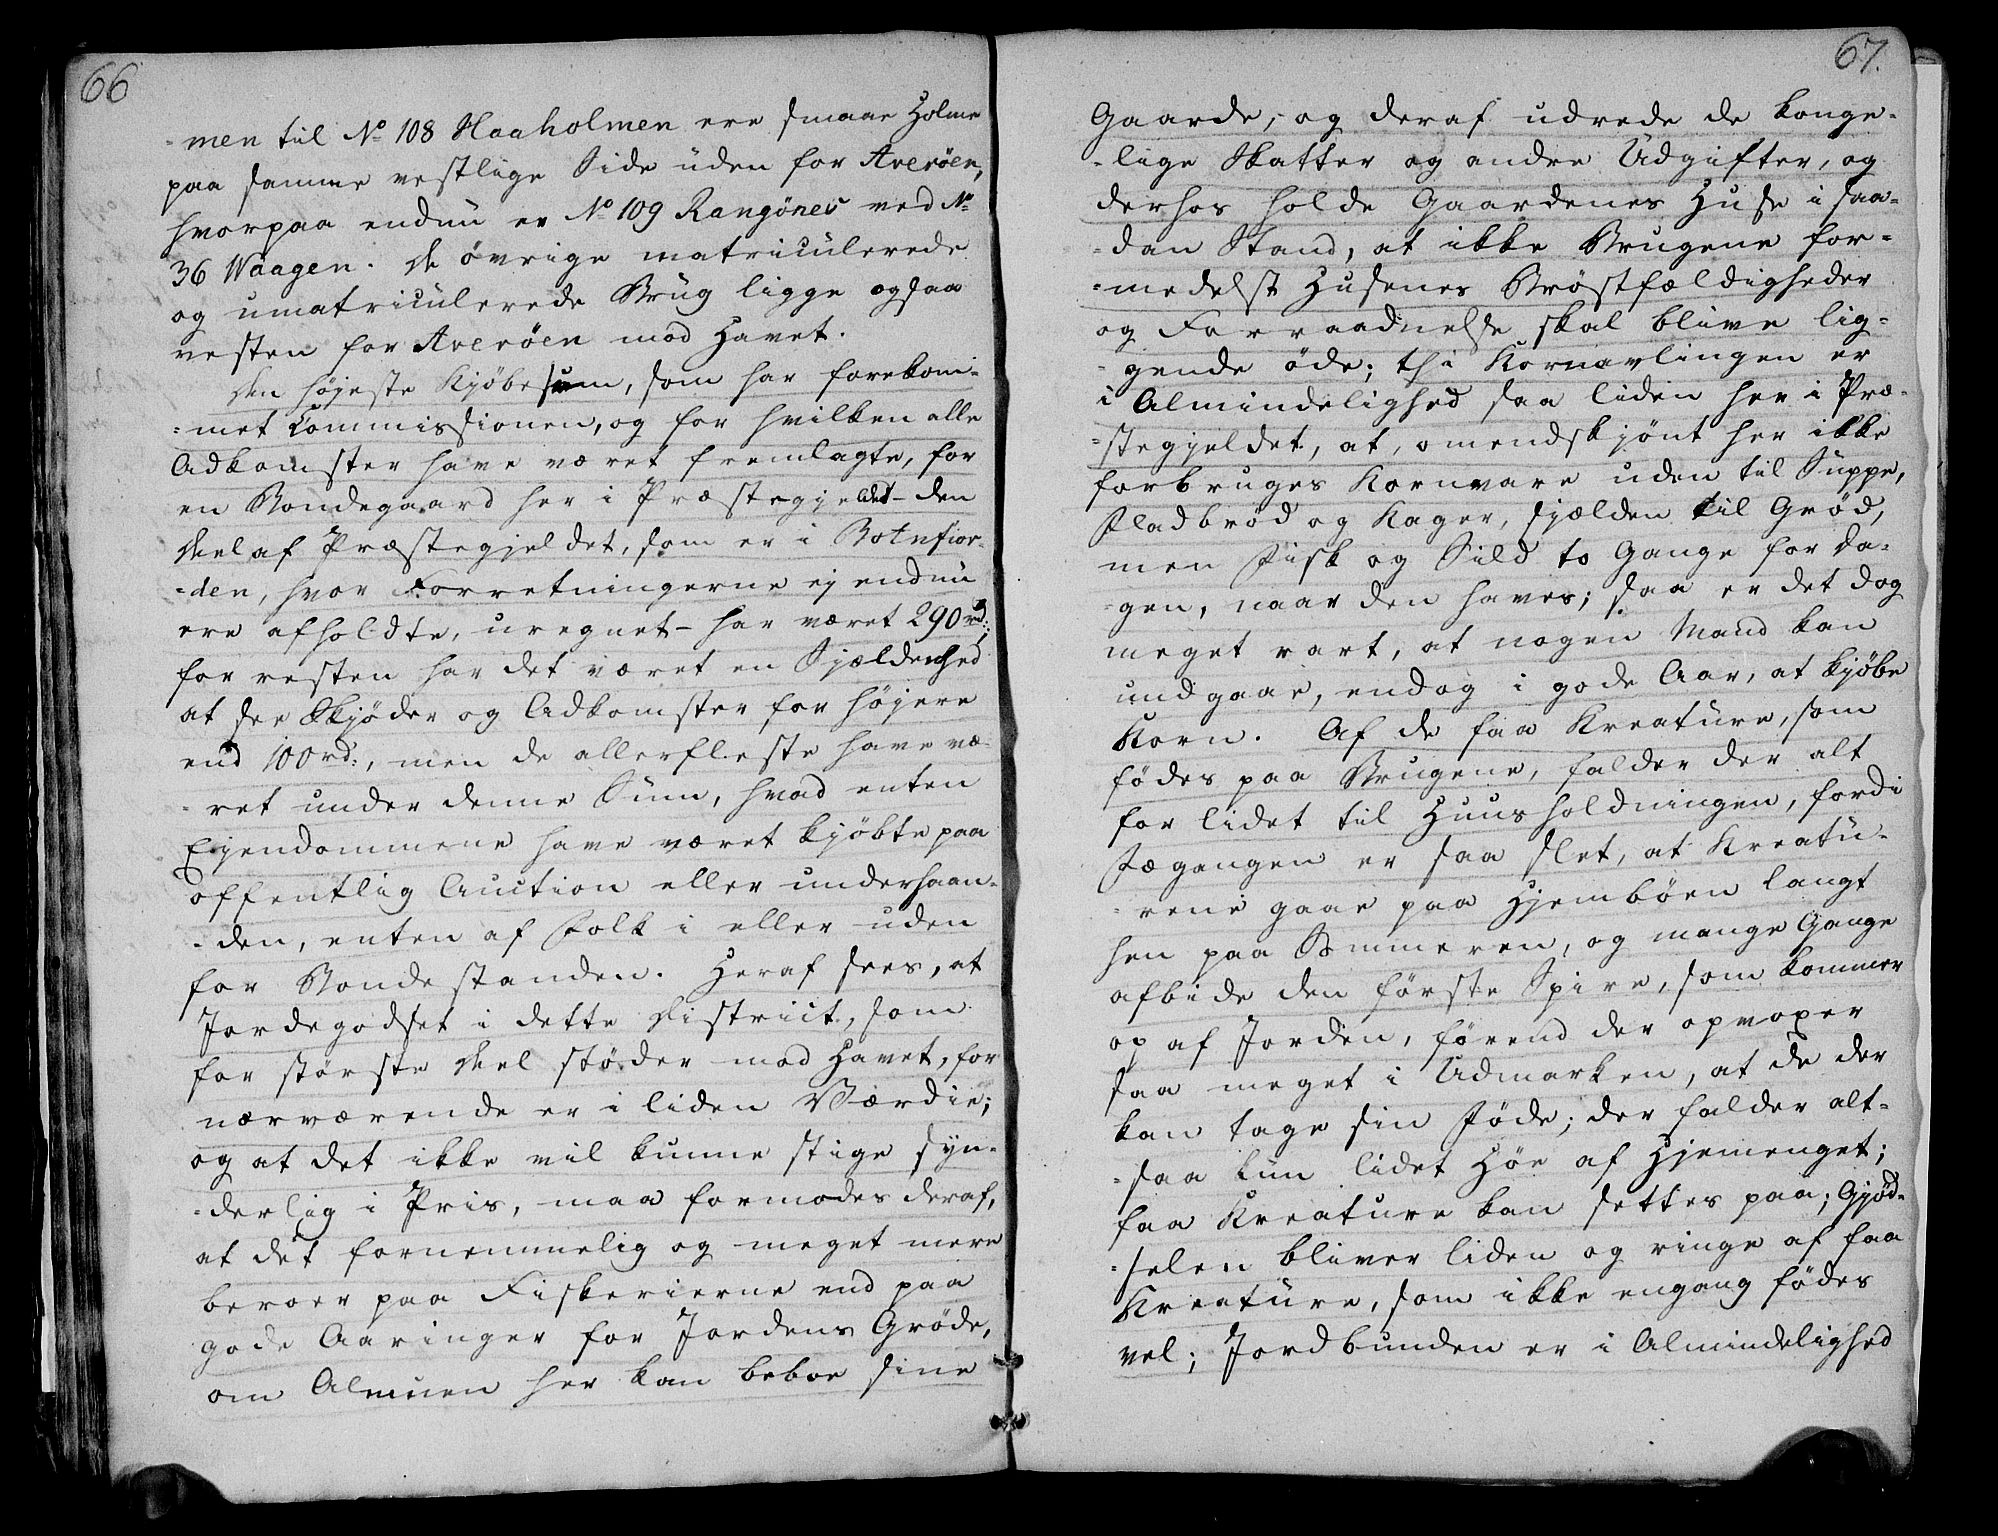 66
-men til No 108 Haaholmen ere smaae Holme
paa samme vestlige Side uden for Averöen,
hvorpaa endnu er No 109 Rangönes ved No
36 Waagen. De øvrige matriculerede
og umatriculerede Brug ligge ogsaa
vesten for Averöen mod Havet.
Den højeste Kjøbesum, som har forekom-
=met Commissionen, og for hvilken alle
Adkomster have været fremlagte, for
en Bondegaard her i Præstegjeldet - den
Deel af Præstegjeldet, som er i Botnfior-
=den, hvor Forretningerne ej endnu
ere afholdte, uregnet - har været 290 rd:;
for resten har det været en Sjældenhed
at see Skjøder og Adkomster for højere
end 100 rd:, men de allerfleste have væ-
ret under denne Sum, hvad enten
Ejendommene have været kjøbte paa
offentlig Auction eller underhaan-
-den, enten af Folk i eller uden
for Bondestanden. Heraf sees, at
Jordegodset i dette District, som
for største Deel støder mod Havet, for
nærværende er i liden Værdie;
og at det ikke vil kunne stige syn-
-derlig i Pris, maa formodes deraf,
at det fornemmelig og meget mere
beroer paa Fiskerierne end paa
gode Aaringer for Jordens Grøde,
om Almuen her kan beboe sine
67.
Gaarde, og deraf udrede de konge-
-lige Skatter og andre Udgifter, og
derhos holde Gaardenes Huse i saa-
-dan Stand, at ikke Brugene for-
=medelst Husenes Brøstfældigheder
og Forraadnelse skal blive lig-
-gende øde; thi Kornavlingen er
i Almindelighed saa liden her i Præ-
-stegjeldet, at, omendskjønt her ikke
forbruges Kornvare uden til Suppe,
Fladbrød og Kager, sjælden til Grød,
men Fisk og Sild to Gange for Da-
-gen, naar den haves; saa er det dog
meget rart, at nogen Mand kan
undgaae, endog i gode Aar, at kjøbe
Korn. Af de faa Kreature, som
fødes paa Brugene, falder der alt
for lidet til Huusholdningen, fordi
Fægangen er saa slet, at Kreatu-
-rene gaae paa Hjembøen langt
hen paa Sommeren, og mange Gange
afbide den første Spire, som kommer
op af Jorden, førend der opvoxer
saa meget i Udmarken, at de der
kan tage sin Føde; der falder alt-
-saa kun lidet Høe af Hjemenget;
faa Kreature kan settes paa; Gjød-
-selen bliver liden og ringe af faa
Kreature, som ikke engang fødes
vel; Jordbunden er i Almindelighed